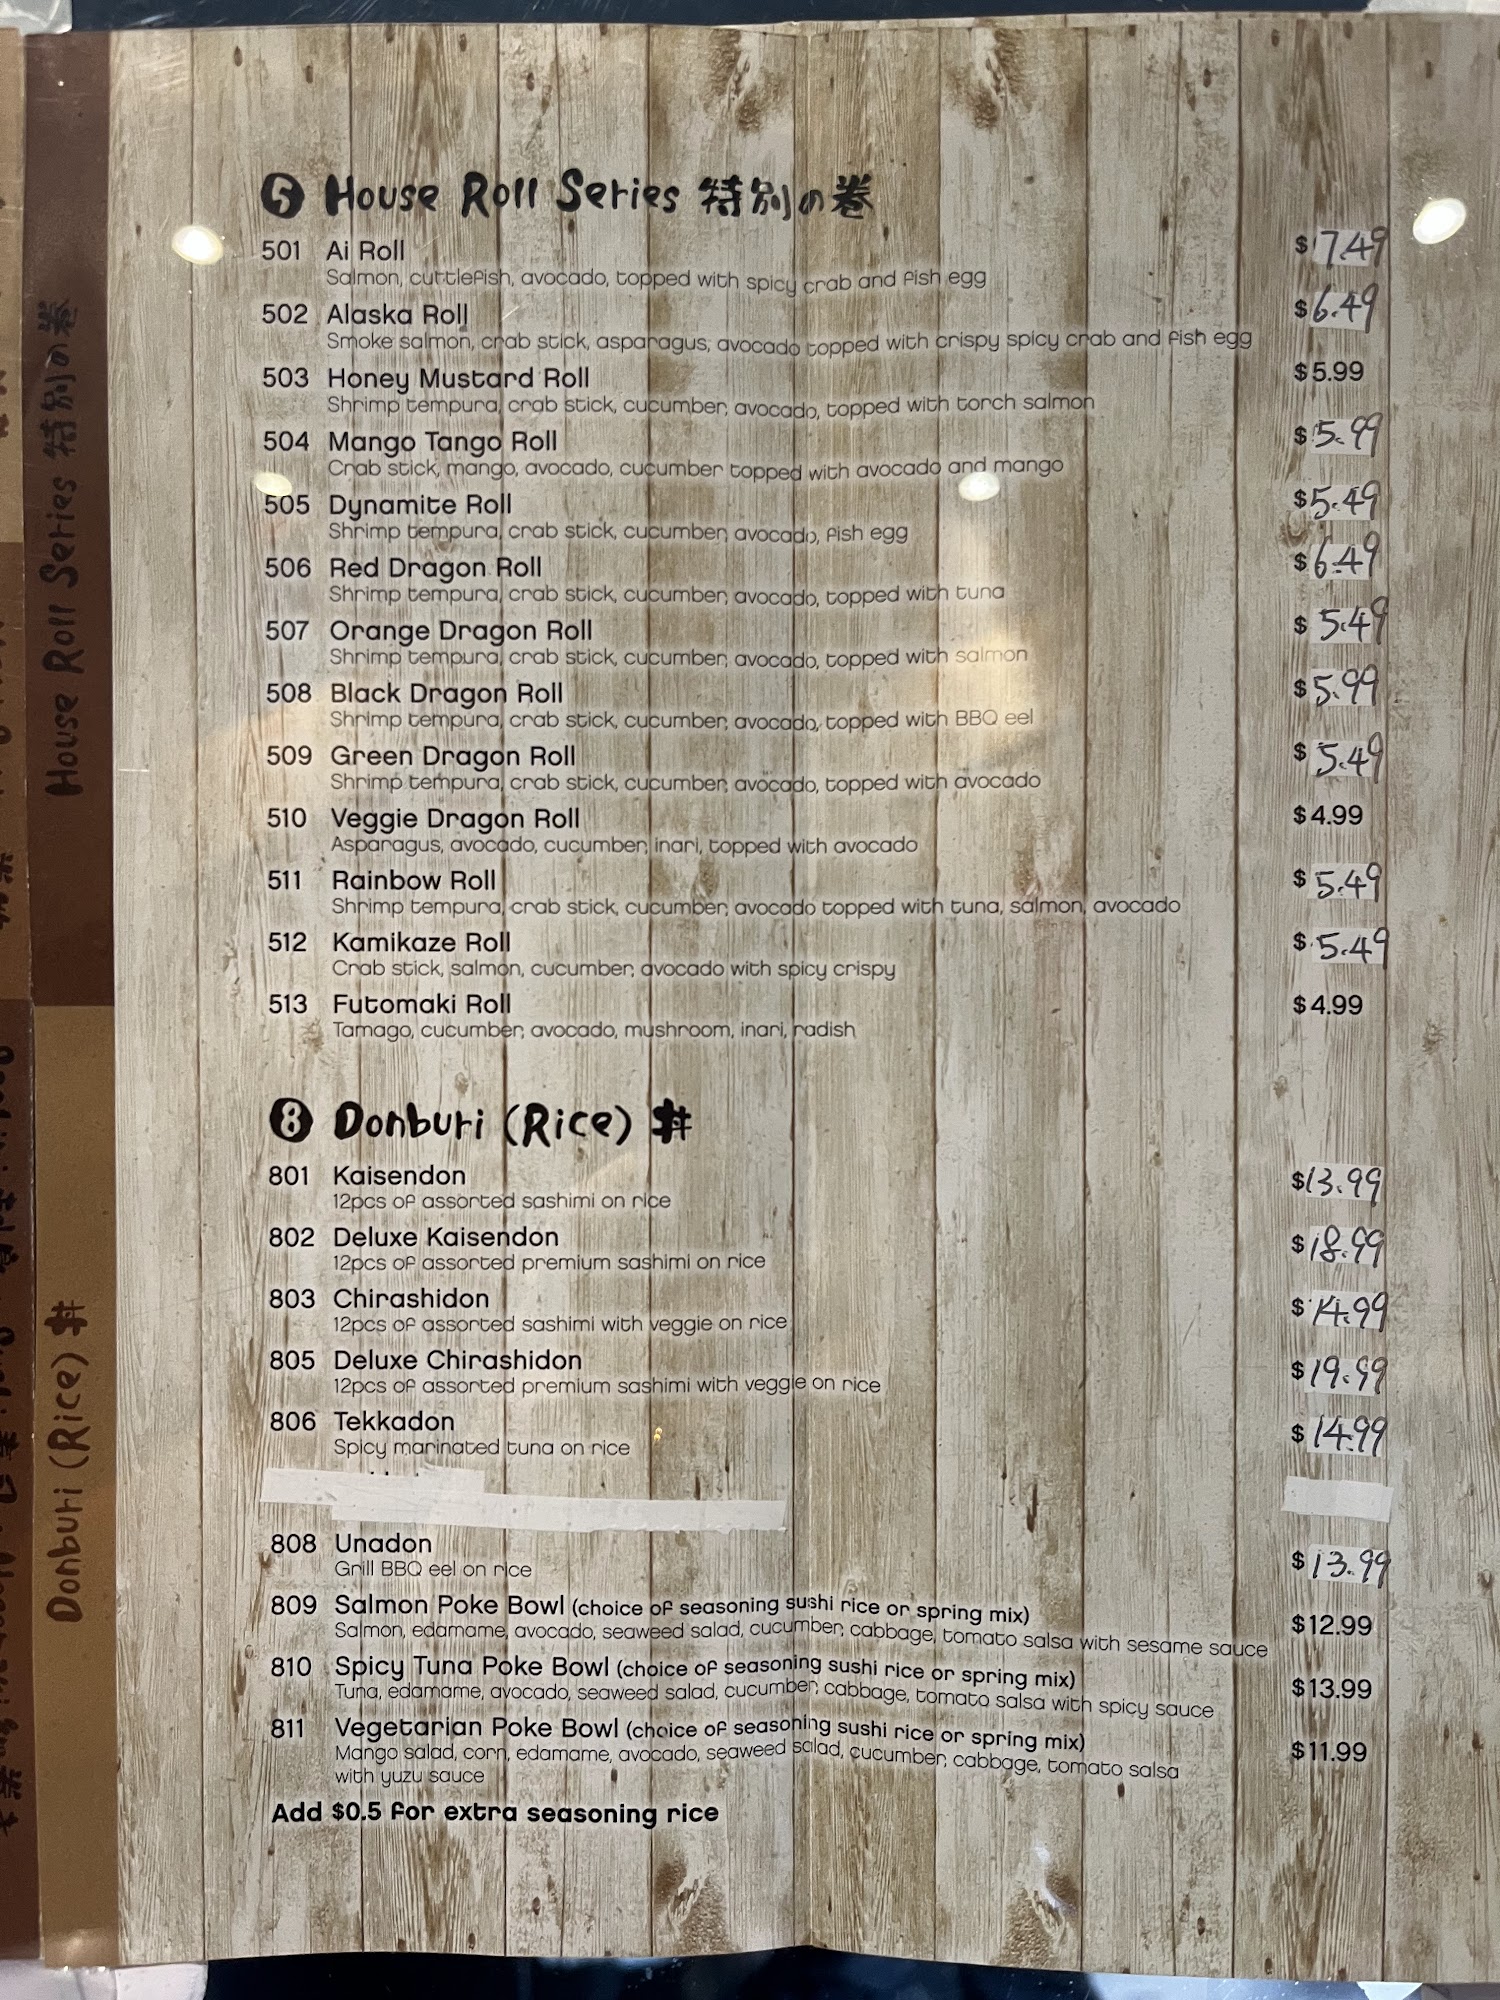 5 House Roll Series 特別の巻
501 Ai Roll $ 7.49
Salmon, cuttlefish, avocado, topped with spicy crab and fish egg
502 Alaska Roll $ 6.49
Smoke salmon, crab stick, asparagus, avocado topped with crispy spicy crab and fish egg
503 Honey Mustard Roll $5.99
Shrimp tempura, crab stick, cucumber, avocado, topped with torch salmon
504 Mango Tango Roll $ 5.99
Crab stick, mango, avocado, cucumber topped with avocado and mango
505 Dynamite Roll $5.49
Shrimp tempura, crab stick, cucumber, avocado, fish egg
506 Red Dragon Roll $ 6.49
Shrimp tempura, crab stick, cucumber, avocado, topped with tuna
507 Orange Dragon Roll $ 5.49
Shrimp tempura, crab stick, cucumber, avocado, topped with salmon
508 Black Dragon Roll $ 5.99
Shrimp tempura, crab stick, cucumber, avocado, topped with BBQ eel
509 Green Dragon Roll $ 5.49
Shrimp tempura, crab stick, cucumber, avocado, topped with avocado
510 Veggie Dragon Roll $4.99
Asparagus, avocado, cucumber, inari, topped with avocado
511 Rainbow Roll $ 5.49
Shrimp tempura, crab stick, cucumber, avocado topped with tuna, salmon, avocado
512 Kamikaze Roll $ 5.49
Crab stick, salmon, cucumber, avocado with spicy crispy
513 Futomaki Roll $4.99
Tamago, cucumber, avocado, mushroom, inari, radish
8 Donburi (Rice) 丼
801 Kaisendon $13.99
12pcs of assorted sashimi on rice
802 Deluxe Kaisendon $18.99
12pcs of assorted premium sashimi on rice
803 Chirashidon $ 14.99
12pcs of assorted sashimi with veggie on rice
805 Deluxe Chirashidon $ 19.99
12pcs of assorted premium sashimi with veggie on rice
806 Tekkadon $ 14.99
Spicy marinated tuna on rice
808 Unadon $ 13.99
Grill BBQ eel on rice
809 Salmon Poke Bowl (choice of seasoning sushi rice or spring mix) $12.99
Salmon, edamame, avocado, seaweed salad, cucumber, cabbage, tomato salsa with sesame sauce
810 Spicy Tuna Poke Bowl (choice of seasoning sushi rice or spring mix) $13.99
Tuna, edamame, avocado, seaweed salad, cucumber, cabbage, tomato salsa with spicy sauce
811 Vegetarian Poke Bowl (choice of seasoning sushi rice or spring mix) $11.99
Mango salad, corn, edamame, avocado, seaweed salad, cucumber, cabbage, tomato salsa
with yuzu sauce
Add $0.5 for extra seasoning rice
House Roll Series 特別の巻
Donburi (Rice) 丼